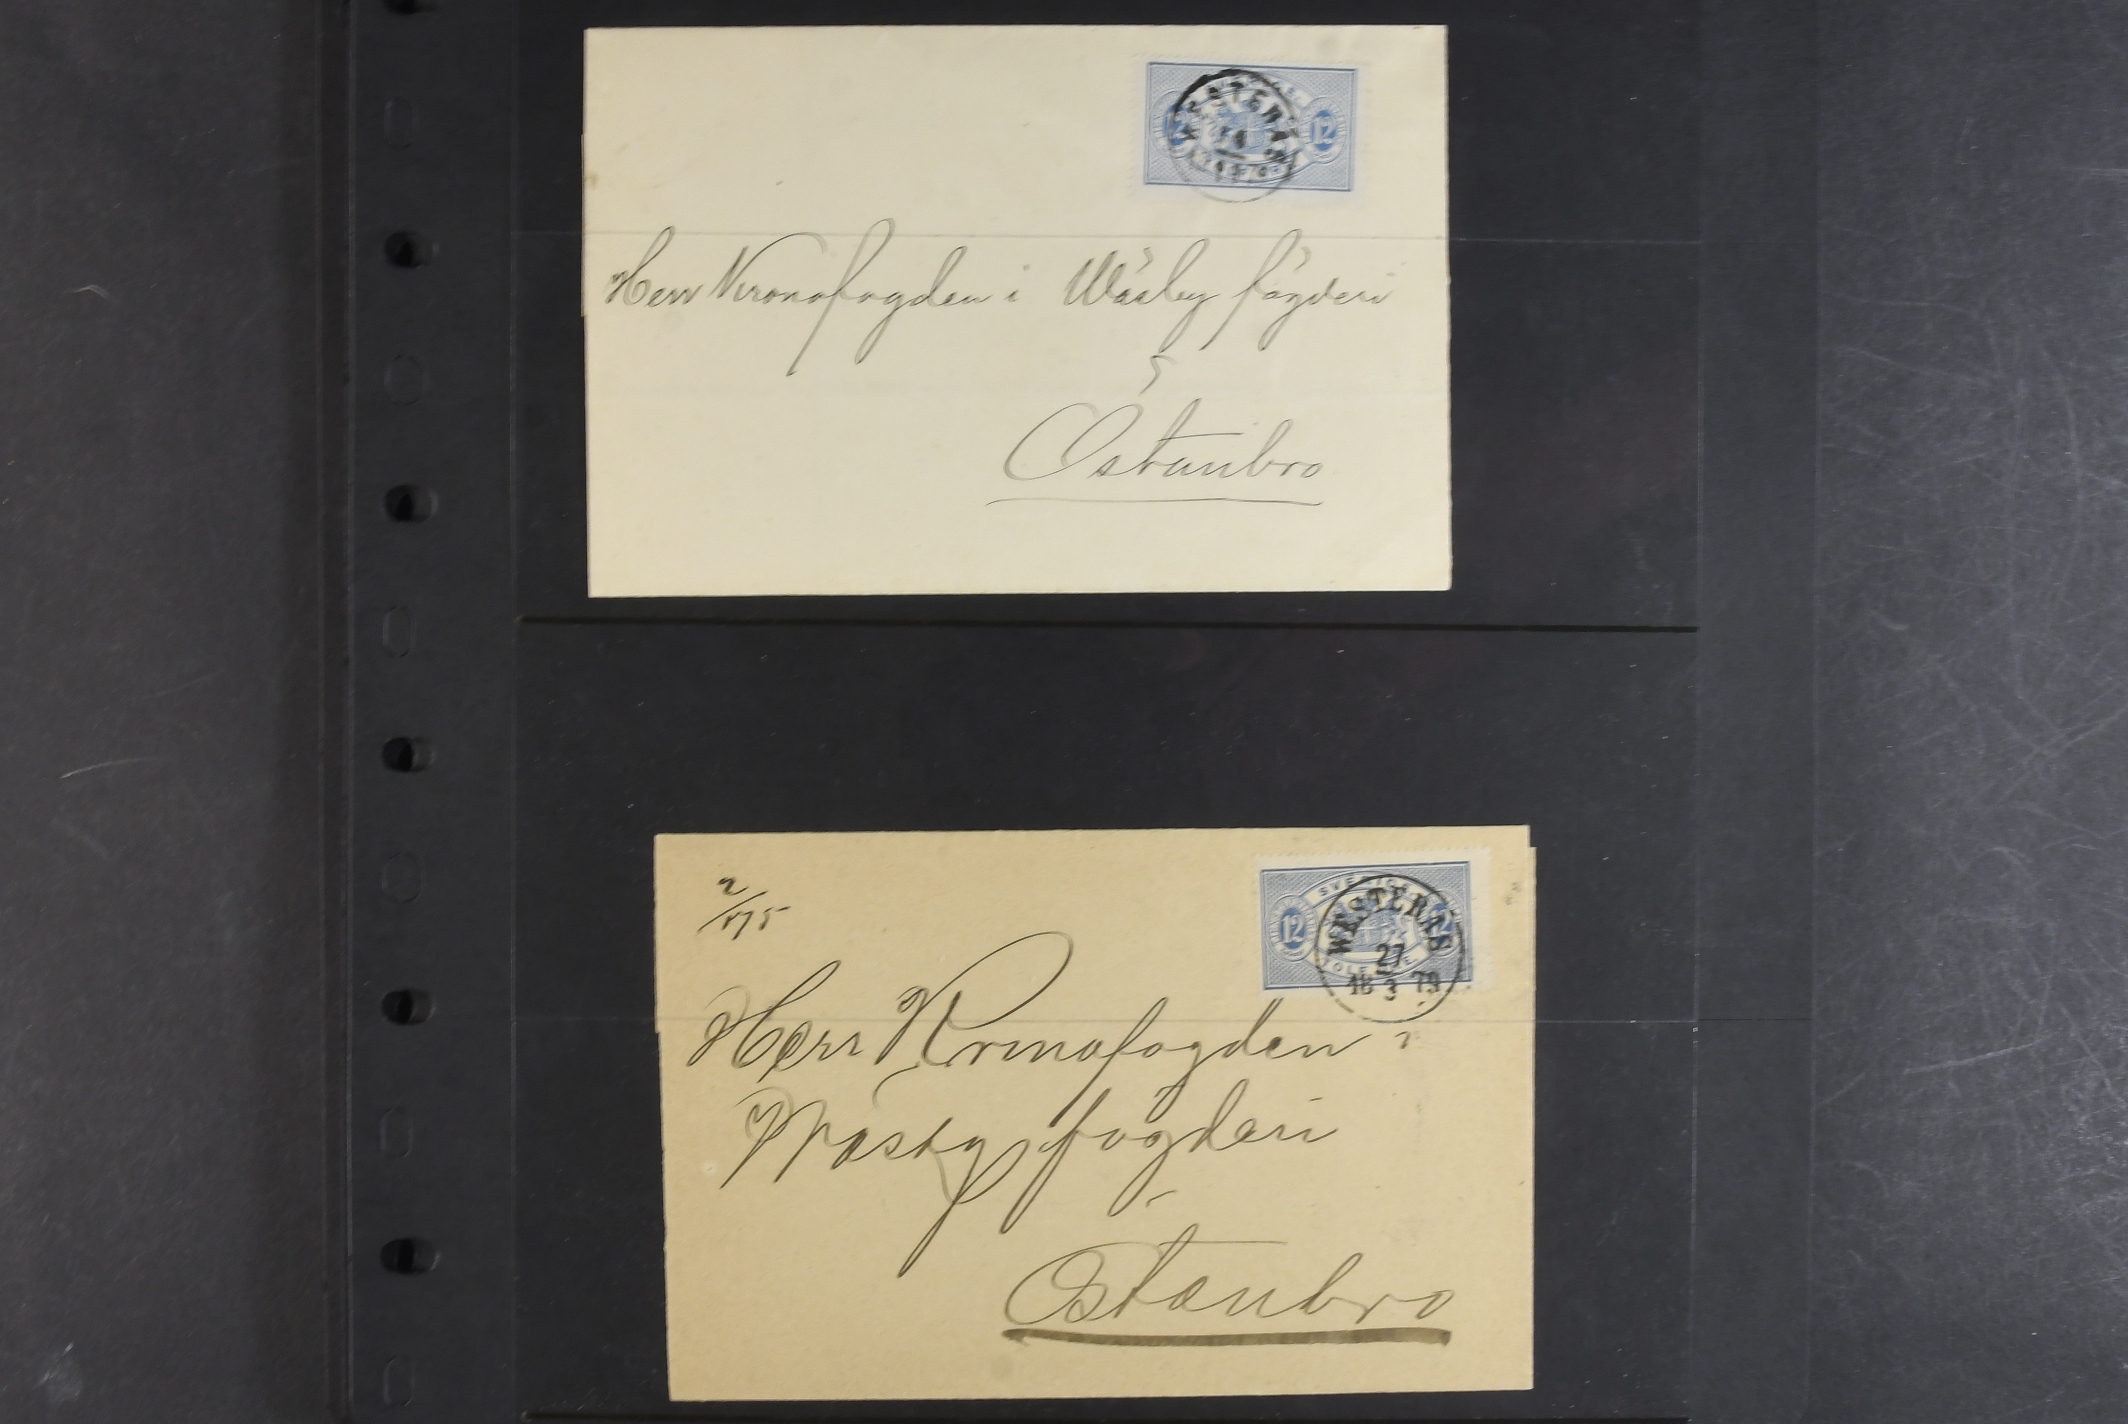 WESTERÅS
14
12
Herr Kronofogden i Wäsby fögderi
Östanbro
2/175
SVERIGE
12
TOLF ÖRE
WESTERÅS
27
18 3 79
Herr Kronofogden i
Wäsby fögderi
Östanbro